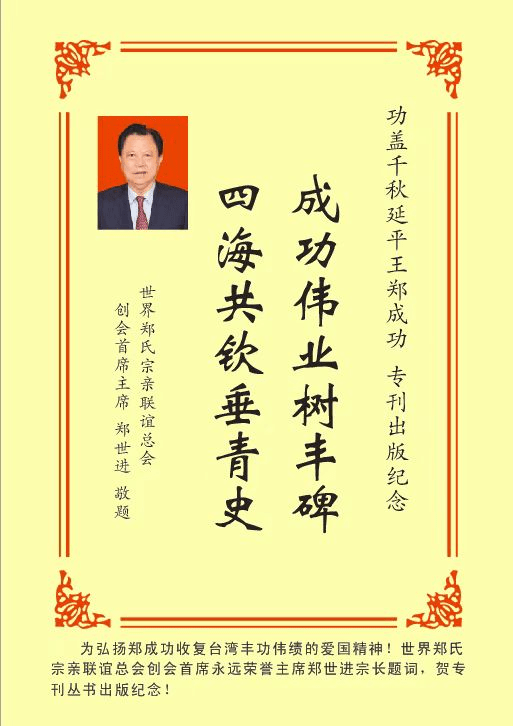 功盖千秋延平王郑成功 专刊出版纪念
成功伟业树丰碑
四海共钦垂青史
世界郑氏宗亲联谊总会
创会首席主席 郑世进 敬题
为弘扬郑成功收复台湾丰功伟绩的爱国精神！世界郑氏
宗亲联谊总会创会首席永远荣誉主席郑世进宗长题词，贺专
刊丛书出版纪念！